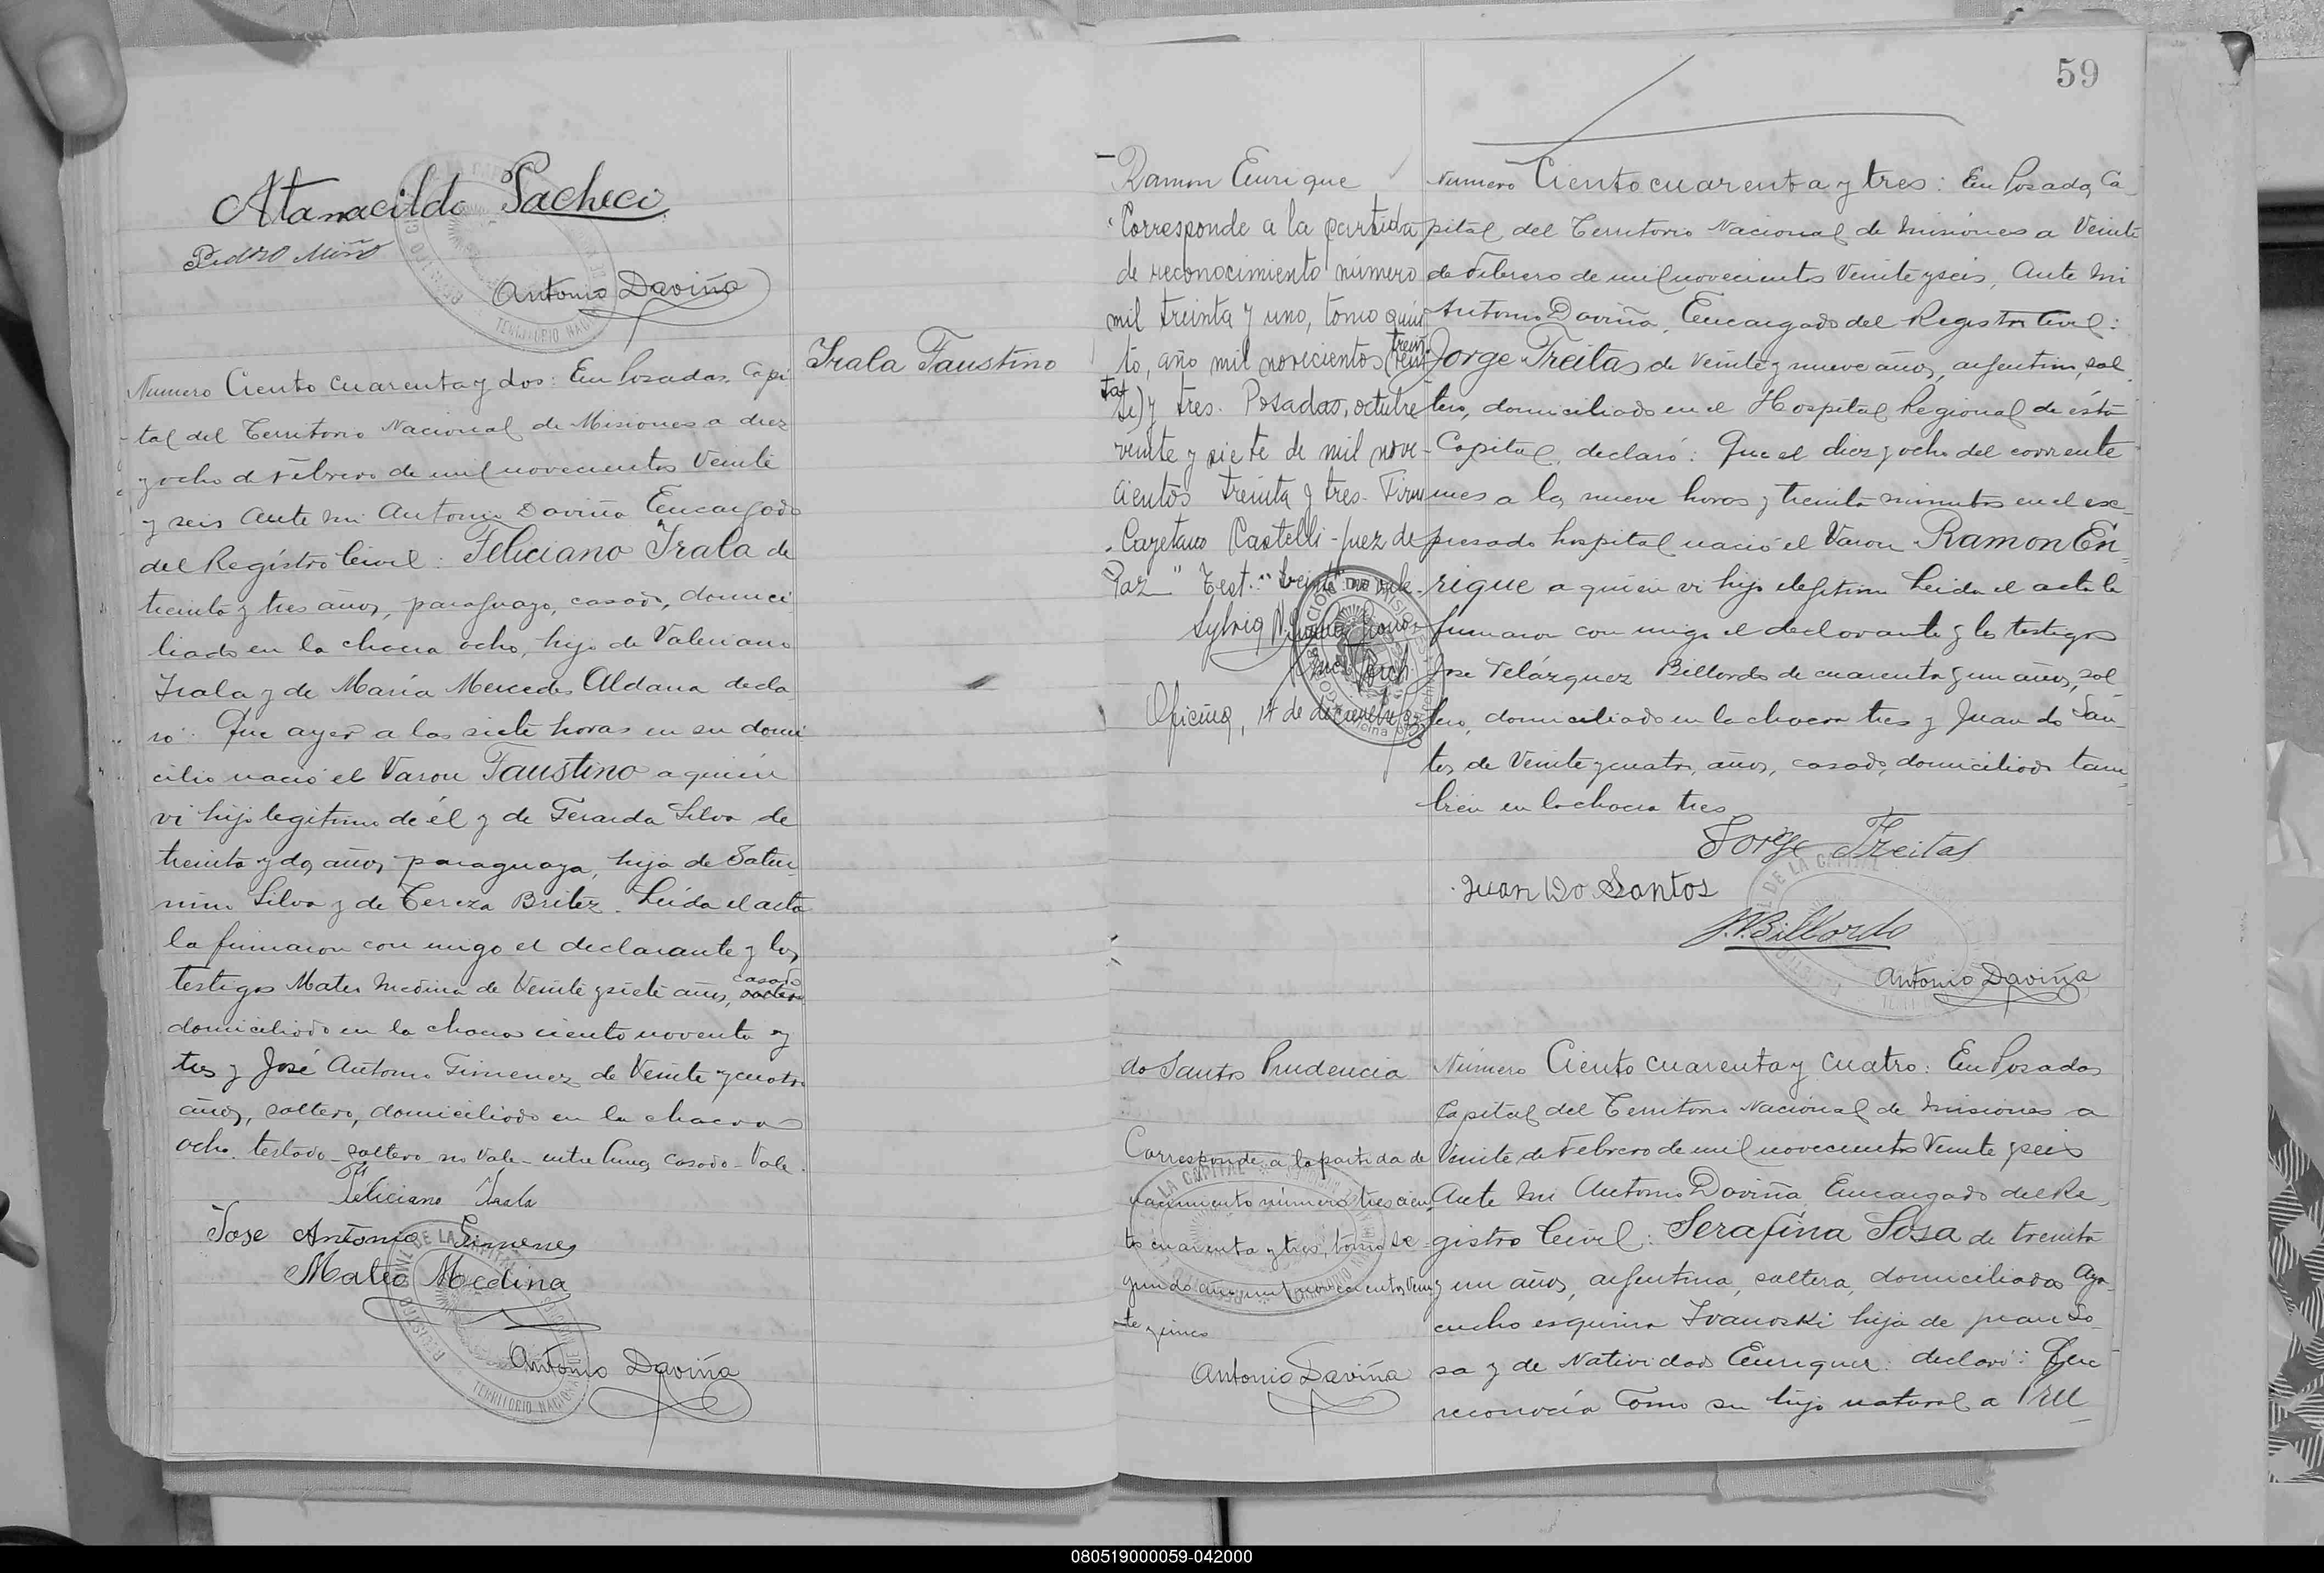 Atanacildo Pacheco
Pedro Miño
Antonio Daviña
Irala Faustino
Numero Ciento cuarenta y dos: En Posadas, Capi
tal del Territorio Nacional de Misiones a diez
y ocho de Febrero de mil novecientos Veinte
y seis Ante mi Antonio Daviña Encargado
del Registro Civil: Feliciano Irala de
treinta y tres años, paraguayo, casado, domici
liado en la chacra ocho, hijo de Valeriano
Irala y de María Mercedes Aldana decla
ró: Que ayer a las siete horas en su domi
cilio nació el Varon Faustino a quien
vi hijo legitimo de él y de Gerarda Silva de
treinta y dos años, paraguaya, hija de Satur
nino Silva y de Tereza Britez. Leida el acta
la firmaron con migo el declarante y los
testigos Mateo Medina de Veinte y siete años, casado soltero
domiciliado en la chacra ciento noventa y
tres y José Antonio Gimenez de Veinte y cuatro
años, soltero, domiciliado en la chacra
ocho. testado - soltero - no Vale - entre lineas casado - Vale.
Feliciano Irala
Jose Antonio Gimenes
Mateo Medina
Antonio Daviña
59
Ramon Enrique
Corresponde a la partida
de reconocimiento número
mil treinta y uno, tomo quin
to, año mil novecientos (vein
trein
te) y tres. Posadas, octubre
ta
veinte y siete de mil nove-
cientos treinta y tres. Firm
Cayetano Castelli - Juez de
Paz" Test. "veinte" no vale.
Oficina, 14 de diciembre
Numero Ciento cuarenta y tres: En Posadas, Ca
pital del Territorio Nacional de Misiones a Veinte
de Febrero de mil novecientos Veinte y seis, Ante mi
Antonio Daviña, Encargado del Registro Civil:
Jorge Freitas de Veinte y nueve años, argentino, sol
tero, domiciliado en el Hospital Regional de ésta
Capital, declaró: Que el diez y ocho del corriente
mes a las nueve horas y treinta minutos en el ex-
presado hospital nació el Varon Ramon En-
rique a quien vi hijo ilegitimo Leida el acta la
firmaron con migo el declarante y los testigos
Jose Velázquez Billordo de cuarenta y un años, sol
tero, domiciliado en la chacra tres y Juan do San-
tos de Veinte y cuatro, años, casado, domiciliado tam-
bien en la chacra tres
Jorge Freitas
Juan Do Santos
J.V. Billordo
Antonio Daviña
do Santos Prudencia
Corresponde a la partida de
nacimiento número trescien
tos cuarenta y tres, tomo se-
gundo año mil novecientos Vein
te y cinco
Antonio Daviña
Número Ciento cuarenta y cuatro: En Posadas
Capital del Territorio Nacional de Misiones a
Veinte de Febrero de mil novecientos Veinte y seis
Ante mi Antonio Daviña Encargado del Re-
gistro Civil: Serafina Sosa de treinta
y un años, argentina, soltera, domiciliada Aya-
cucho esquina Ivanoski hija de Juan So-
sa y de Natividad Enriquez: declaró: Que
reconocía como su hijo natural a Pru
080519000059-042000